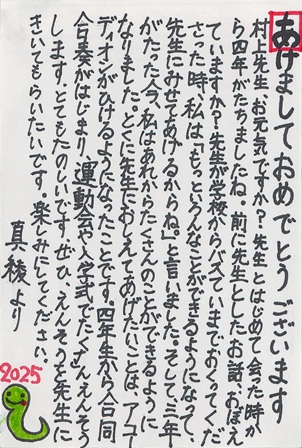 あけましておめでとうございます
村上先生、お元気ですか？先生とはじめて会った時か
ら四年がたちましたね。前に先生としたお話、おぼえ
ていますか？先生が学校からバスていまでおくってくだ
さった時、私は「もっといろんなことができるようになって、
先生にみせてあげるからね。」と言いました。そして、三年
がたった今、私はあれからたくさんのことができるように
なりました。とくに先生におしえてあげたいことは、アコー
ディオンがひけるようになったことです。四年生から合同
合奏がはじまり、運動会や入学式でたくさんえんそう
します。とてもたのしいです。ぜひ、えんそうを先生に
きいてもらいたいです。楽しみにしてください。
真綾より
2025